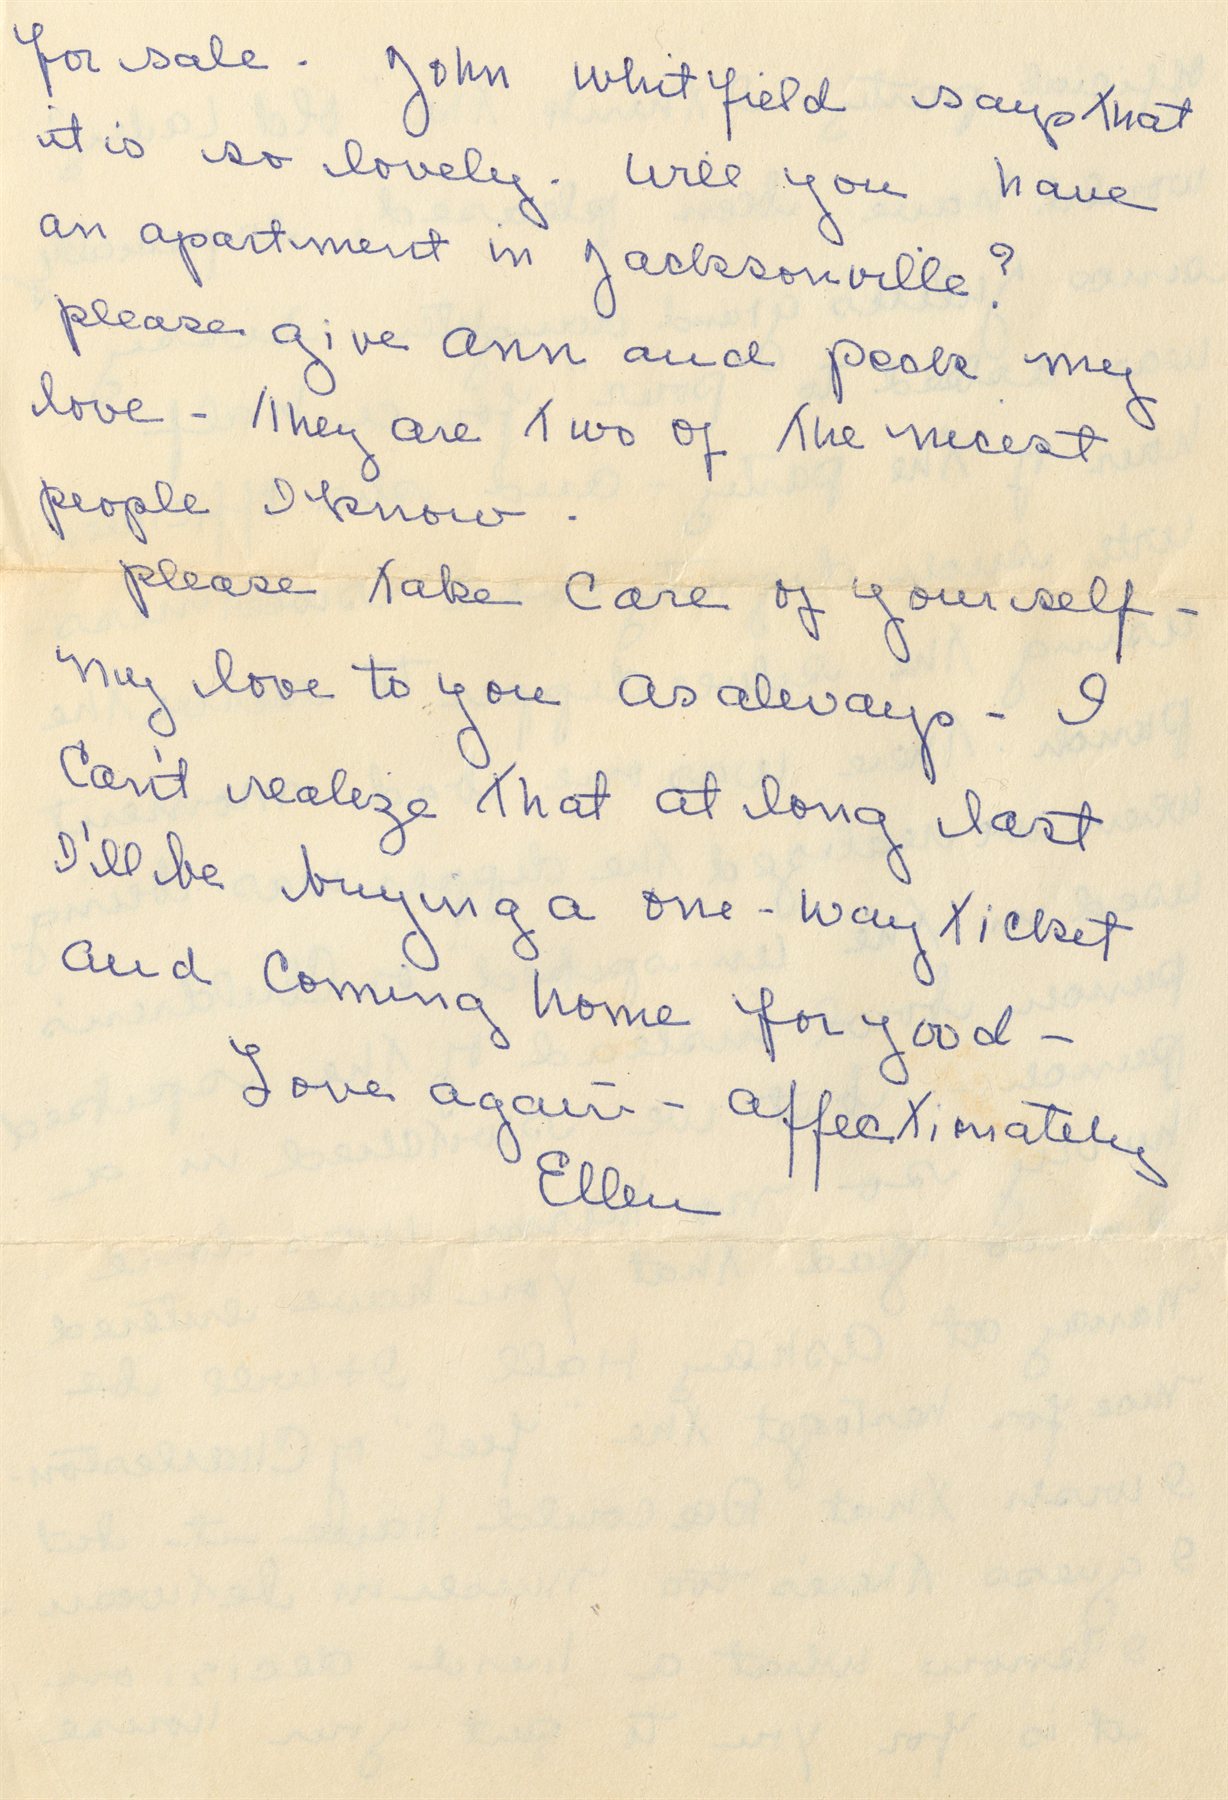 for sale. John Whitfield says that
it is so lovely. Will you have
an apartment in Jacksonville?
please give Ann and Peck my
love - They are two of the nicest
people I know.
please take care of yourself -
My love to you as always - I
Can't realize that at long last
I'll be buying a one-way ticket
and coming home for good -
Love again - affectionately
Ellen